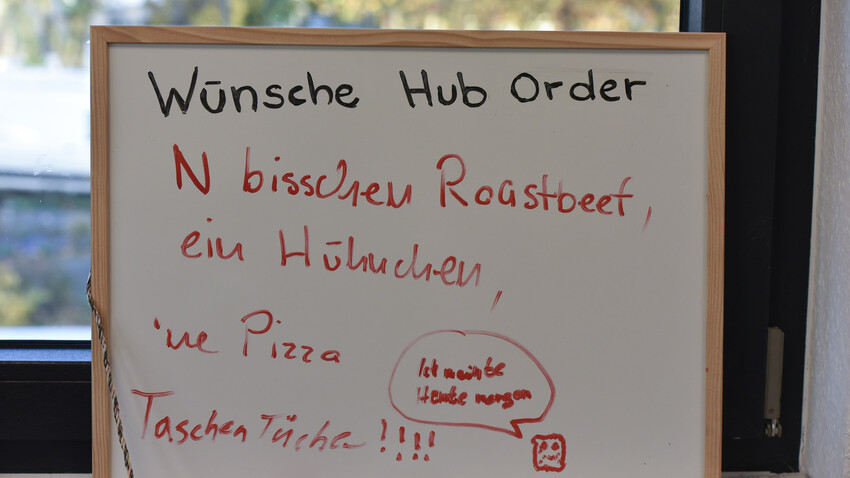 Wünsche Hub Order
N bisschen Roastbeef,
ein Hühnchen,
'ne Pizza
Ich meinte
Heute morgen
Taschen Tücher !!!!